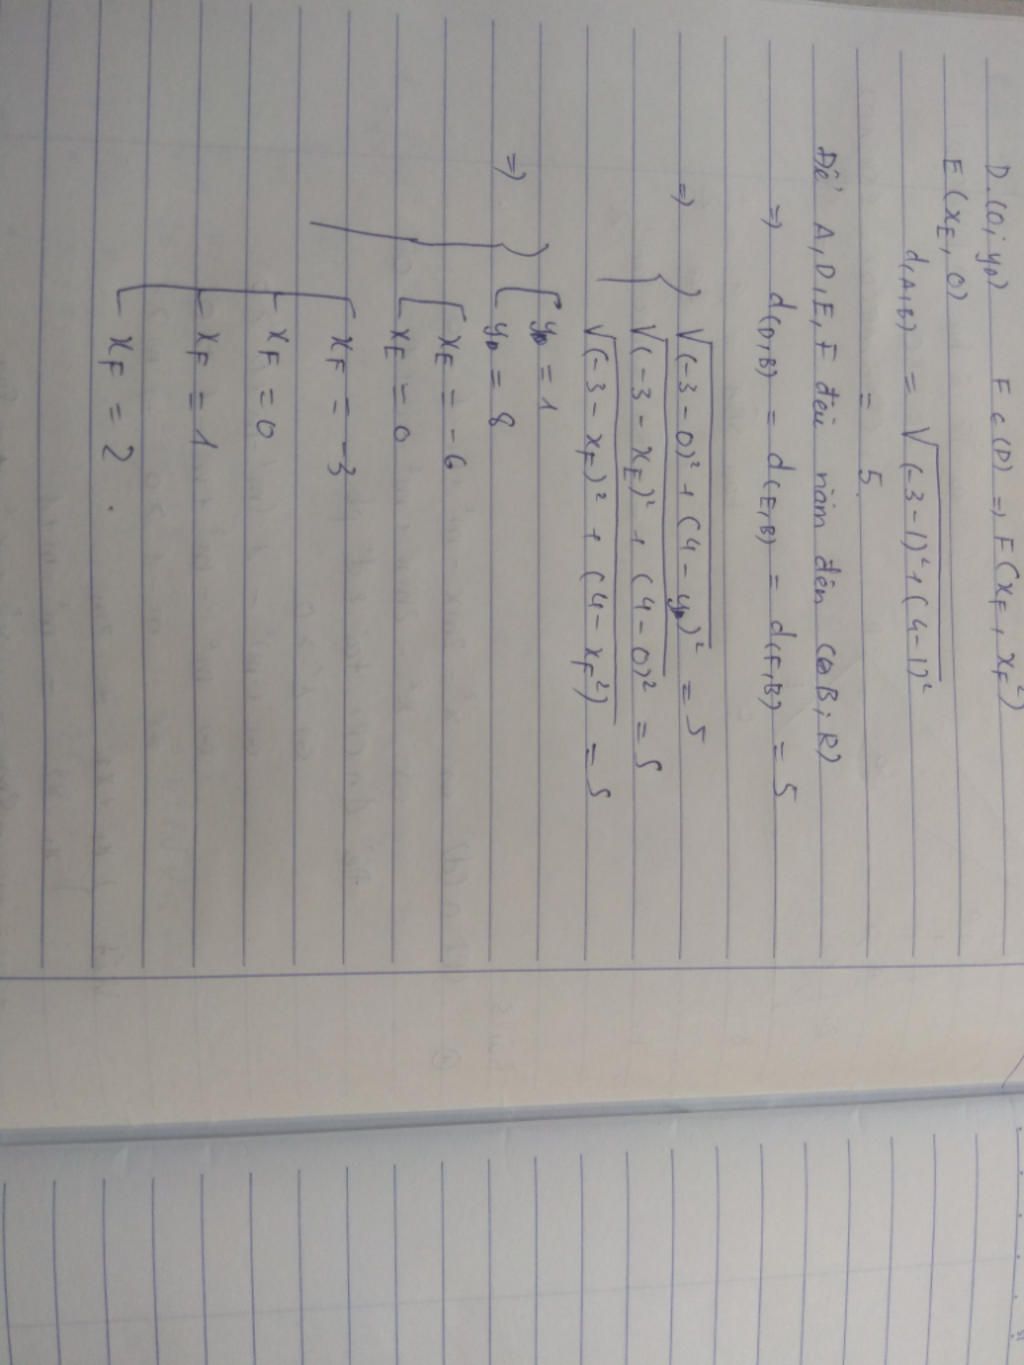 D(0; y_D) F ∈ (P) => F(x_F, x_F²)
E(x_E, 0)
d(A,B) = √(-3-1)² + (4-1)²
= 5
Để A, D, E, F đều nằm đên (B; R)
=> d(D,B) = d(E,B) = d(F,B) = 5
=> { √(-3-0)² + (4-y_D)² = 5
√(-3-x_E)² + (4-0)² = 5
√(-3-x_F)² + (4-x_F²) = 5
=> { [ y_D = 1
y_D = 8
[ x_E = -6
x_E = 0
[ x_F = -3
x_F = 0
x_F = 1
x_F = 2.